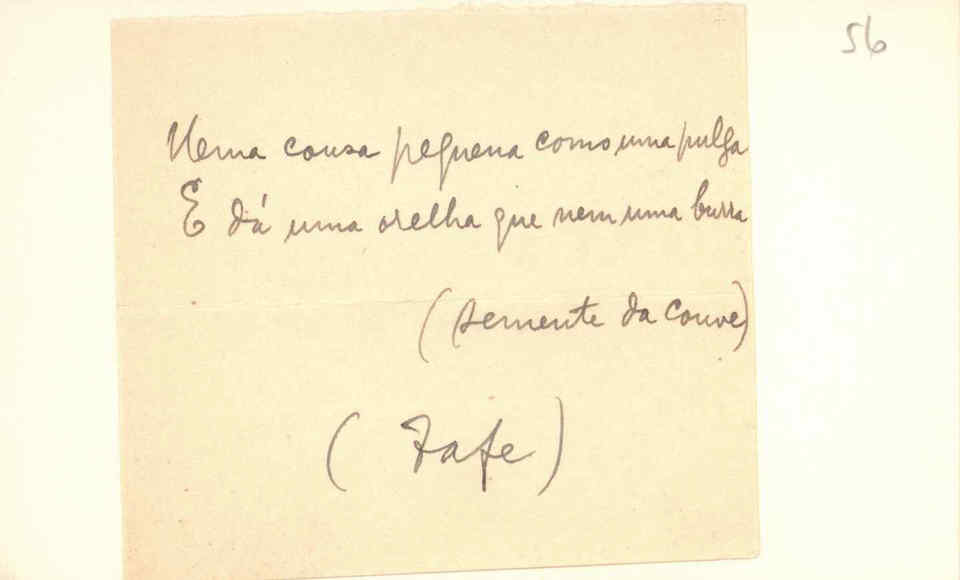 56
Uma cousa pequena como uma pulga
E dá uma orelha que nem uma burra
(semente da couve)
(Fafe)